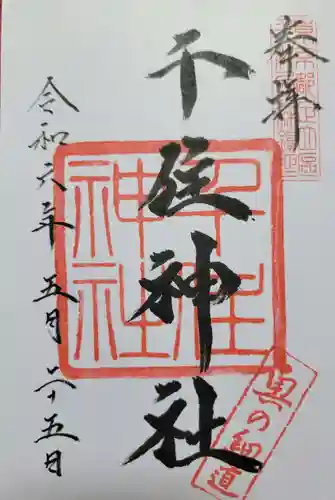 奉拝
千住神社
千住神社
奥の細道
令和元年五月二十五日